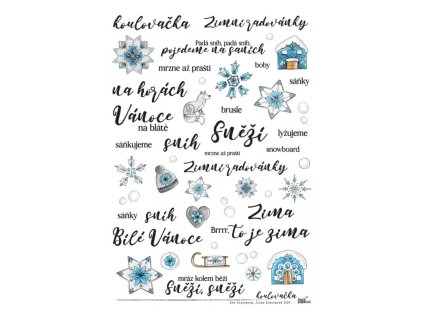 koulovačka
Zimní radovánky
Padá sníh, padá sníh,
pojedeme na saních
mrzne až praští
boby
sáňky
na horách
Vánoce
na blátě
brusle
Sněží
lyžujeme
sáňkujeme
sníh
mrzne až praští
snowboard
Zimní radovánky
sáňky
sníh
Zima
Bílé Vánoce
Brrrr,
to je zima
mráz kolem běží
Sněží, sněží
koulovačka